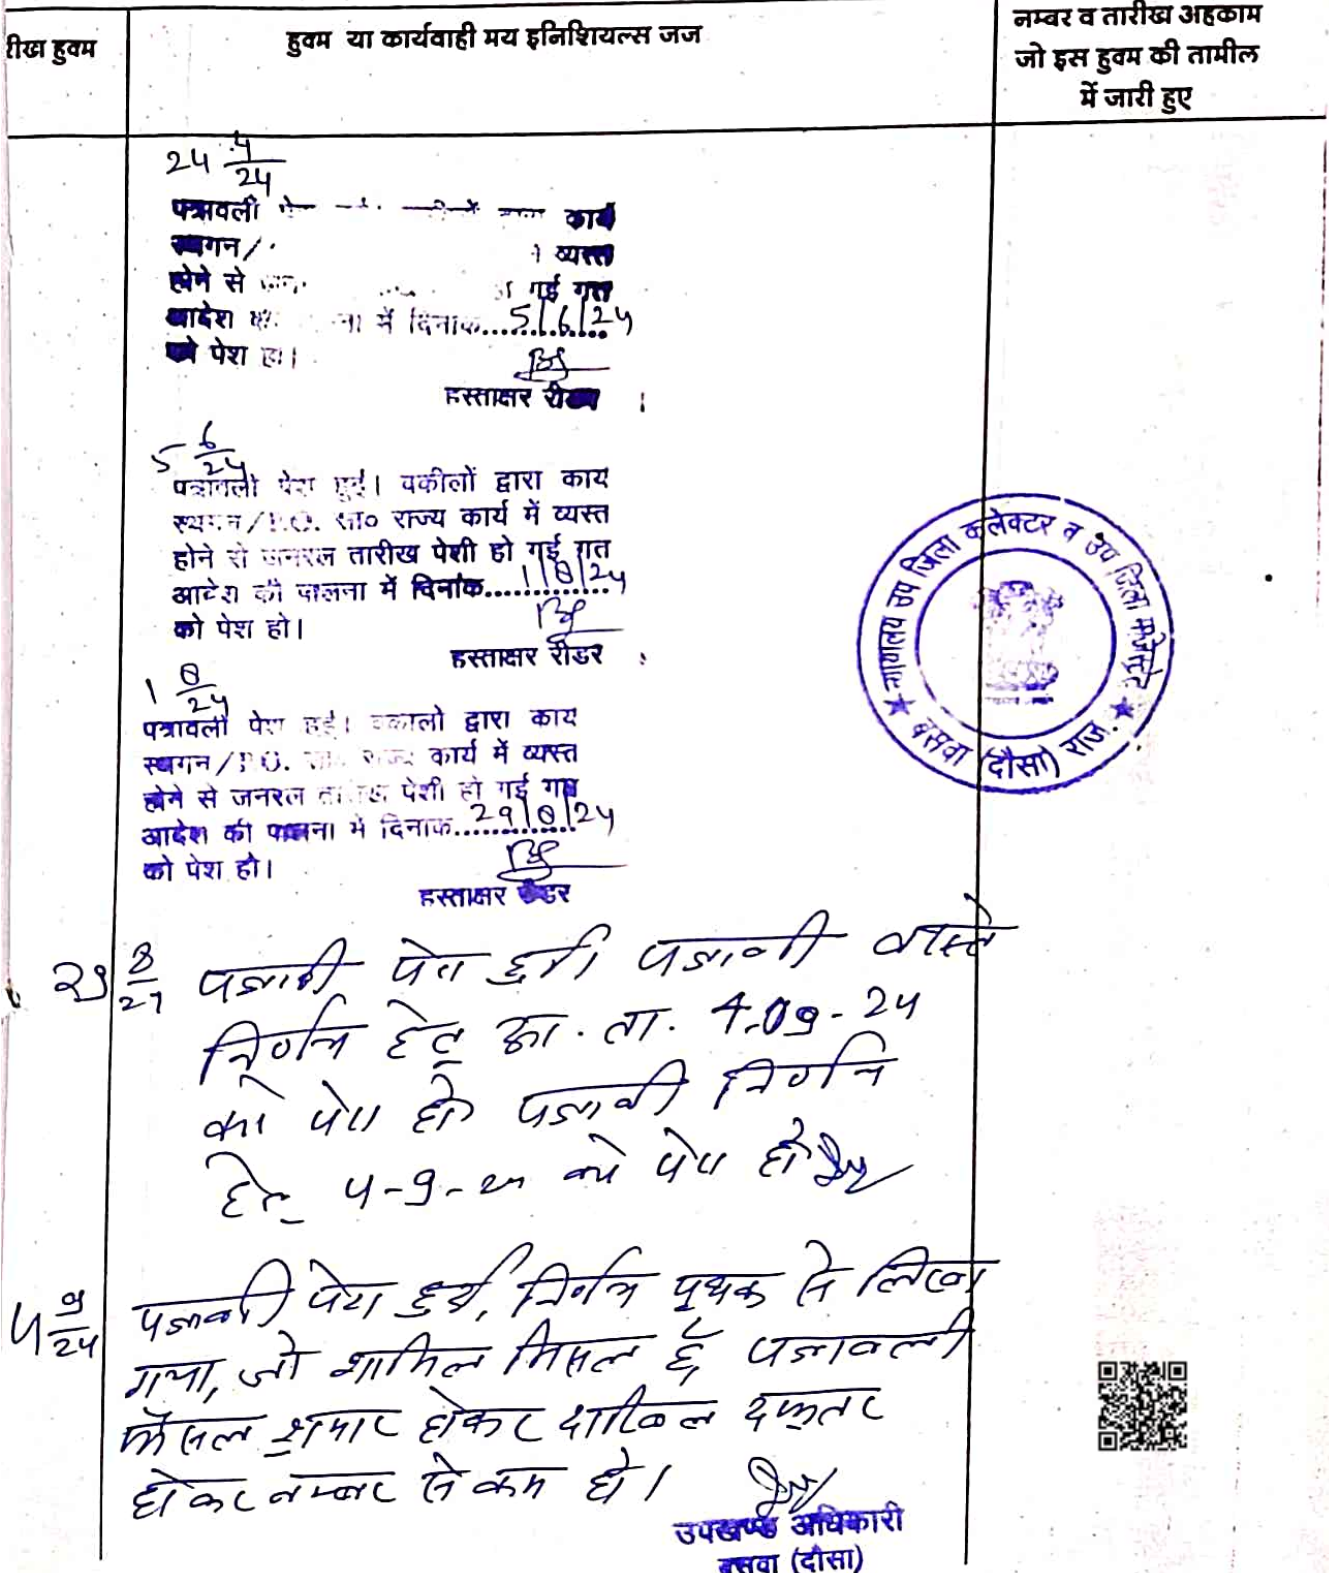 रीख हुक्म
हुक्म या कार्यवाही मय इनिशियल्स जज
नम्बर व तारीख अहकाम
जो इस हुक्म की तामील
में जारी हुए
24 4/24
पत्रावली कार्य
स्थगन/ व्यस्त
होने से गई गत
आदेश में दिनांक.....5/6/24
को पेश हो।
हस्ताक्षर रीडर
5 6/24
पत्रावली पेश हुई। वकीलों द्वारा काय
स्थगन/P.O. सा० राज्य कार्य में व्यस्त
होने से जनरल तारीख पेशी हो गई गत
आदेश की पालना में दिनांक.....1/8/24
को पेश हो।
हस्ताक्षर रीडर
1 8/24
पत्रावली पेश हुई। वकीलो द्वारा काय
स्थगन/P.O. राज्य कार्य में व्यस्त
होने से जनरल तारीख पेशी हो गई गत
आदेश की पालना में दिनांक.....29/8/24
को पेश हो।
हस्ताक्षर रीडर
न्यायालय उप जिला कलेक्टर व उप जिला मजिस्ट्रेट
★ बसवा (दौसा) राज. ★
29 8/24 पत्रावली पेश हुई पत्रावली वास्ते
निर्णय हेतु ता. 4-09-24
को पेश हो पत्रावली निर्णय
हेतु 4-9-24 को पेश हो
4 9/24 पत्रावली पेश हुई, निर्णय पृथक से लिखा
गया, जो शामिल मिसल है पत्रावली
फैसल शुमार होकर दाखिल दफ्तर
होकर नम्बर से कम हो।
उपखण्ड अधिकारी
बसवा (दौसा)